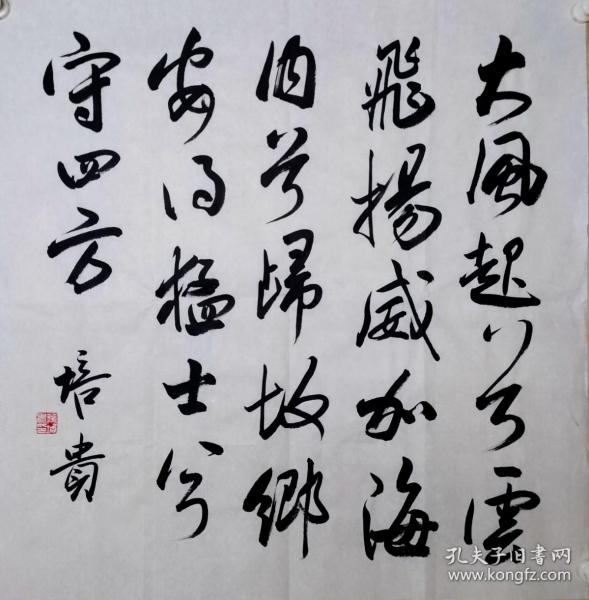 大風起兮雲
飛揚威加海
内兮歸故鄉
安得猛士兮
守四方
培貴
孔夫子旧书网
www.kongfz.com